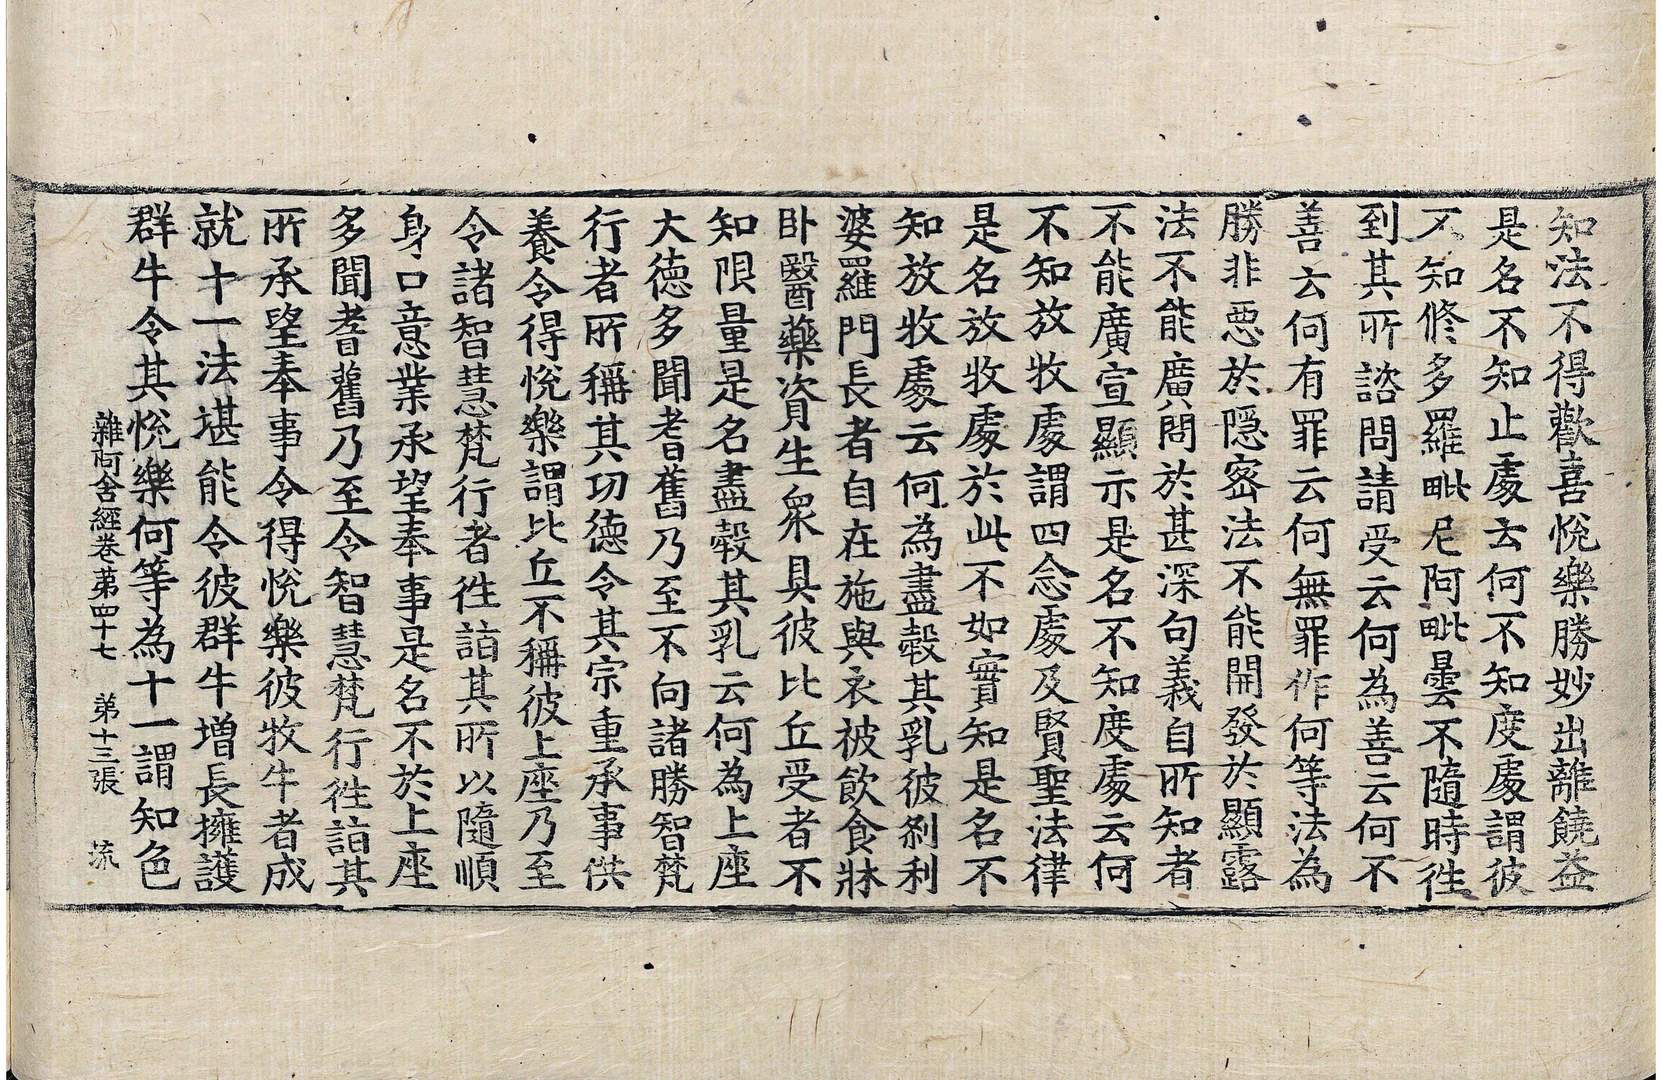 知法不得歡喜悅樂勝妙出離饒益
是名不知止處云何不知度處謂彼
不知修多羅毗尼阿毗曇不隨時徃
到其所諮問請受云何為善云何不
善云何有罪云何無罪作何等法為
勝非惡於隱密法不能開發於顯露
法不能廣問於甚深句義自所知者
不能廣宣顯示是名不知度處云何
不知放牧處謂四念處及賢聖法律
是名放牧處於此不如實知是名不
知放牧處云何為盡𣫍其乳彼剎利
婆羅門長者自在施與衣被飲食牀
卧醫藥資生衆具彼比丘受者不
知限量是名盡𣫍其乳云何為上座
大德多聞耆舊乃至不向諸勝智梵
行者所稱其功德令其宗重承事供
養令得悅樂謂比丘不稱彼上座乃至
令諸智慧梵行者徃詣其所以隨順
身口意業承望奉事是名不於上座
多聞耆舊乃至令智慧梵行徃詣其
所承望奉事令得悅樂彼牧牛者成
就十一法堪能令彼群牛增長擁護
群牛令其悅樂何等為十一謂知色
雜阿含經卷第四十七 第十三張 流